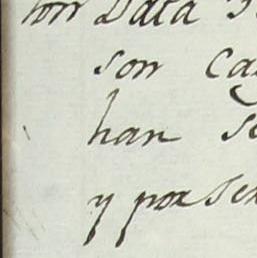 ton Data
son Ca
han se
y por se